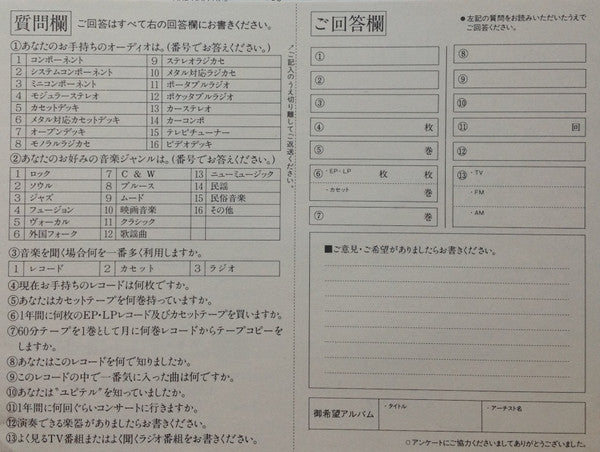 質問欄 ご回答はすべて右の回答欄にお書きください。
①あなたのお手持ちのオーディオは。(番号でお答えください。)
1 コンポーネント 9 ステレオラジカセ
2 システムコンポーネント 10 メタル対応ラジカセ
3 ミニコンポーネント 11 ポータブルラジオ
4 モジュラーステレオ 12 ポケッタブルラジオ
5 カセットデッキ 13 カーステレオ
6 メタル対応カセットデッキ 14 カーコンポ
7 オープンデッキ 15 テレビチューナー
8 モノラルラジカセ 16 ビデオデッキ
②あなたのお好みの音楽ジャンルは。(番号でお答えください。)
1 ロック 7 C & W 13 ニューミュージック
2 ソウル 8 ブルース 14 民謡
3 ジャズ 9 ムード 15 民俗音楽
4 フュージョン 10 映画音楽 16 その他
5 ヴォーカル 11 クラシック
6 外国フォーク 12 歌謡曲
③音楽を聞く場合何を一番多く利用しますか。
1 レコード 2 カセット 3 ラジオ
④現在お手持ちのレコードは何枚ですか。
⑤あなたはカセットテープを何巻持っていますか。
⑥1年間に何枚のEP・LPレコード及びカセットテープを買いますか。
⑦60分テープを1巻として月に何巻レコードからテープコピーを
しますか。
⑧あなたはこのレコードを何で知りましたか。
⑨このレコードの中で一番気に入った曲は何ですか。
⑩あなたは"ユピテル"を知っていましたか。
⑪1年間に何回ぐらいコンサートに行きますか。
⑫演奏できる楽器がありましたらお書きください。
⑬よく見るTV番組またはよく聞くラジオ番組をお書きください。
ご記入のうえ切り離してご返送ください。
ご回答欄
●左記の質問をお読みいただいたうえで
ご回答ください。
①
②
③
④ 枚
⑤ 巻
⑥ ・EP・LP 枚 枚
・カセット 巻
⑦ 巻
⑧
⑨
⑩
⑪ 回
⑫
⑬ ・TV
・FM
・AM
■ご意見・ご希望がありましたらお書きください。
御希望アルバム ・タイトル ・アーチスト名
○アンケートにご協力くださいましてありがとうございました。